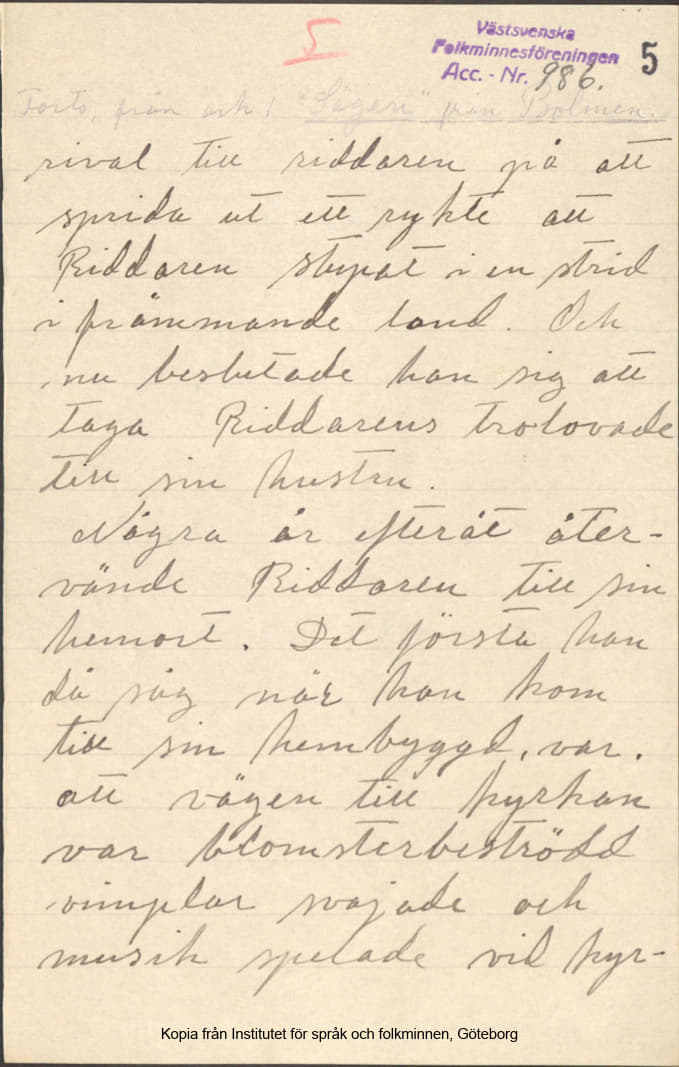 5
Västsvenska
Folkminnesföreningen
Acc. - Nr. 986.
5
Forts, från ark 1 "Sägen" från Bolmen.
rival till riddaren på att
sprida ut ett rykte att
Riddaren stupat i en strid
i främmande land. Och
nu beslutade han sig att
taga Riddarens trolovade
till sin hustru.
Några år efteråt åter-
vände Riddaren till sin
hemort. Det första han
då såg när han kom
till sin hembyggd, var.
att vägen till kyrkan
var blomsterbeströdd
vimplar svajade och
musik spelade vid kyr-
Kopia från Institutet för språk och folkminnen, Göteborg